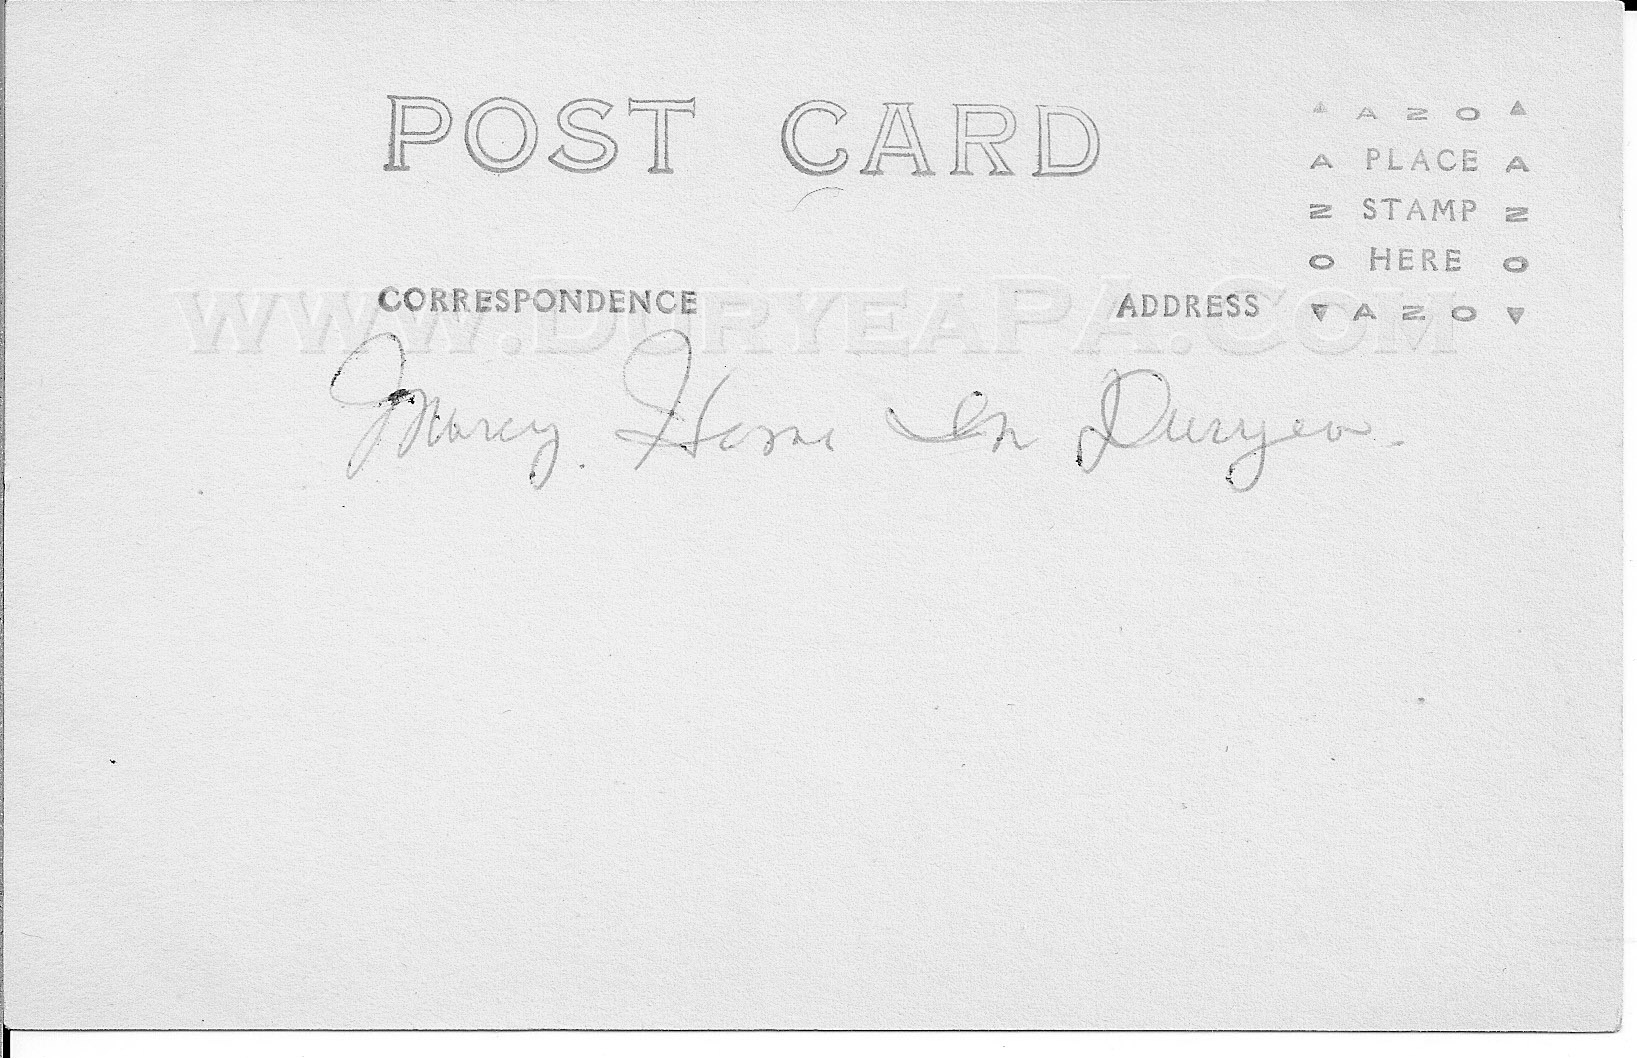 POST CARD
▲ A Z O ▲
A PLACE A
Z STAMP Z
O HERE O
▼ A Z O ▼
CORRESPONDENCE
ADDRESS
WWW.DURYEAPA.COM
Marcy. Home In Duryea.